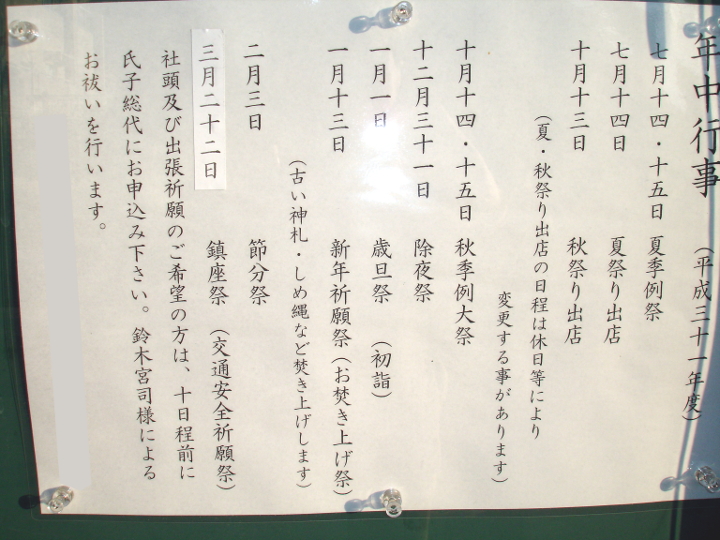 年中行事 (平成三十一年度)
七月十四・十五日 夏季例祭
七月十四日 夏祭り出店
十月十三日 秋祭り出店
(夏・秋祭り出店の日程は休日等により
変更する事があります)
十月十四・十五日 秋季例大祭
十二月三十一日 除夜祭
一月一日 歳旦祭 (初詣)
一月十三日 新年祈願祭(お焚き上げ祭)
(古い神札・しめ縄など焚き上げします)
二月三日 節分祭
三月二十二日 鎮座祭 (交通安全祈願祭)
社頭及び出張祈願のご希望の方は、十日程前に
氏子総代にお申込み下さい。鈴木宮司様による
お祓いを行います。